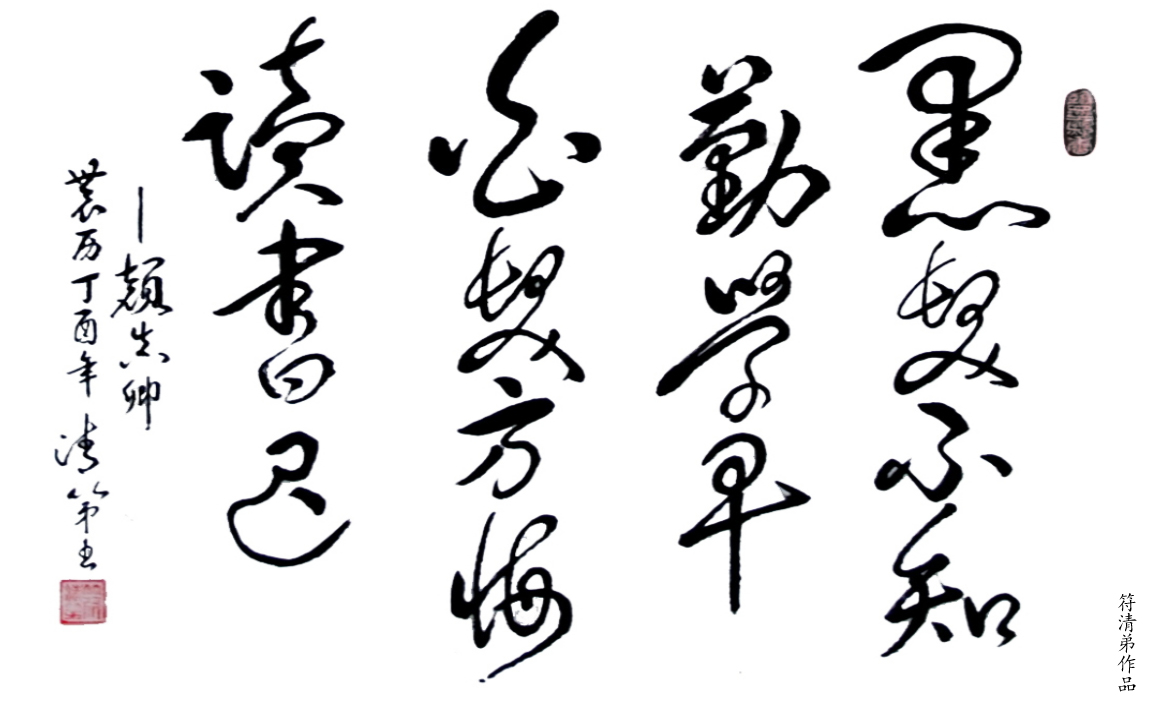 黑髮不知
勤學早
白髮方悔
讀書迟
—颜真卿
農历丁酉年 清弟书
符清弟作品